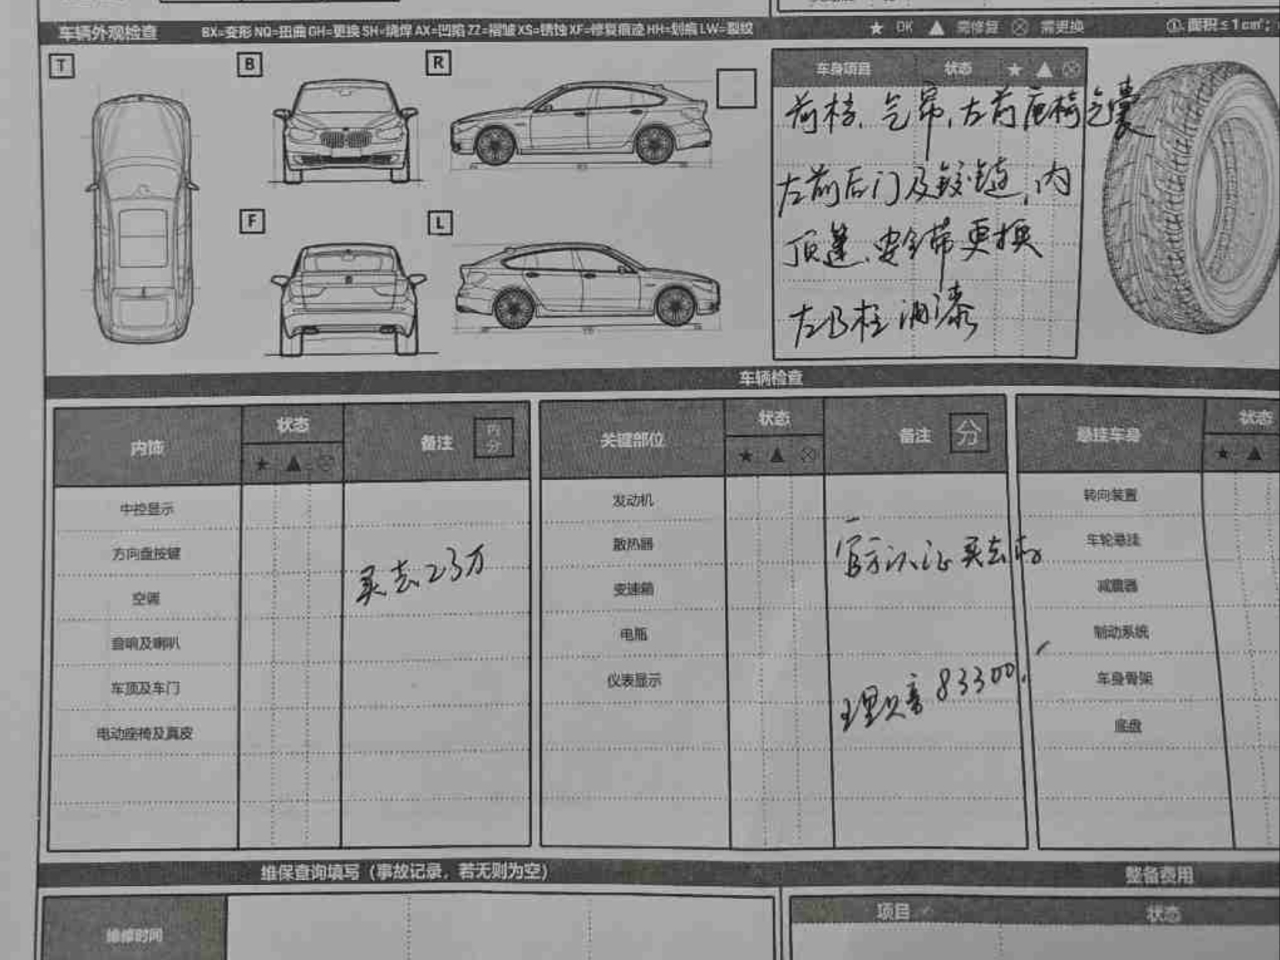 车辆外观检查 BX=变形 NQ=扭曲 GH=更换 SH=烧焊 AX=凹陷 ZZ=褶皱 XS=锈蚀 XF=修复痕迹 HH=划痕 LW=裂纹 ★ OK ▲ 需修复 ⊗ 需更换 ①.面积≤1cm²;
T B R
F L
车身项目 状态 ★ ▲ ⊗
前档、气帘、左前座椅气囊
左前后门及铰链、内
顶篷、安全带更换
左B柱油漆
车辆检查
内饰 状态 ★ ▲ ⊗ 备注 内分
中控显示
方向盘按键
空调
音响及喇叭
车顶及车门
电动座椅及真皮
买去23万
关键部位 状态 ★ ▲ ⊗ 备注 分
发动机
散热器
变速箱
电瓶
仪表显示
官方认证买去
83300
悬挂车身 状态 ★ ▲
转向装置
车轮悬挂
减震器
制动系统
车身骨架
底盘
维保查询填写（事故记录，若无则为空） 整备费用
维修时间 项目 状态